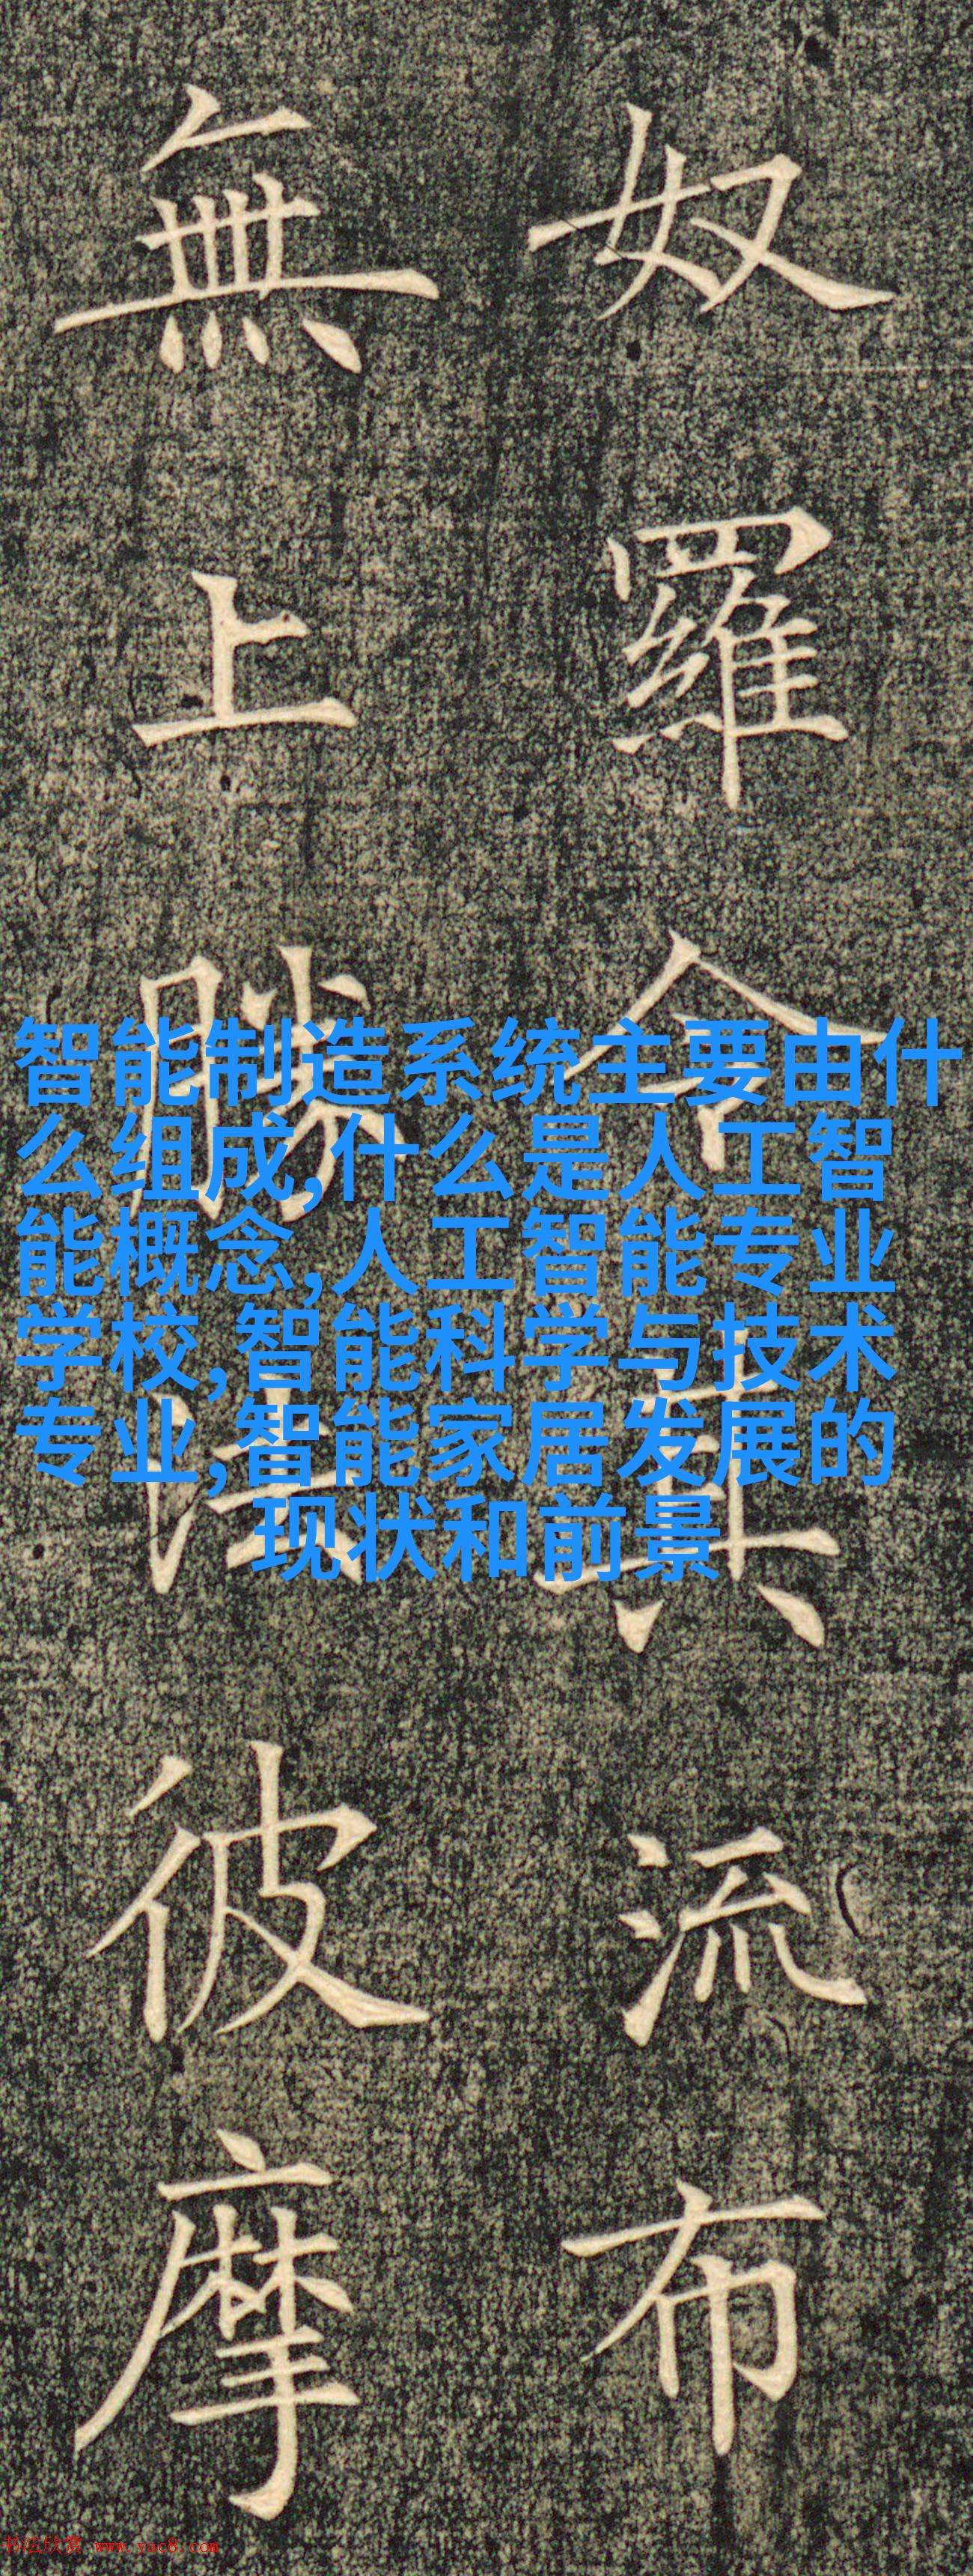 奴羅令其流布
無上勝法彼摩
智能制造系统主要由什
么组成,什么是人工智
能概念,人工智能专业
学校,智能科学与技术
专业,智能家居发展的
现状和前景
书法欣赏 www.yac8.com